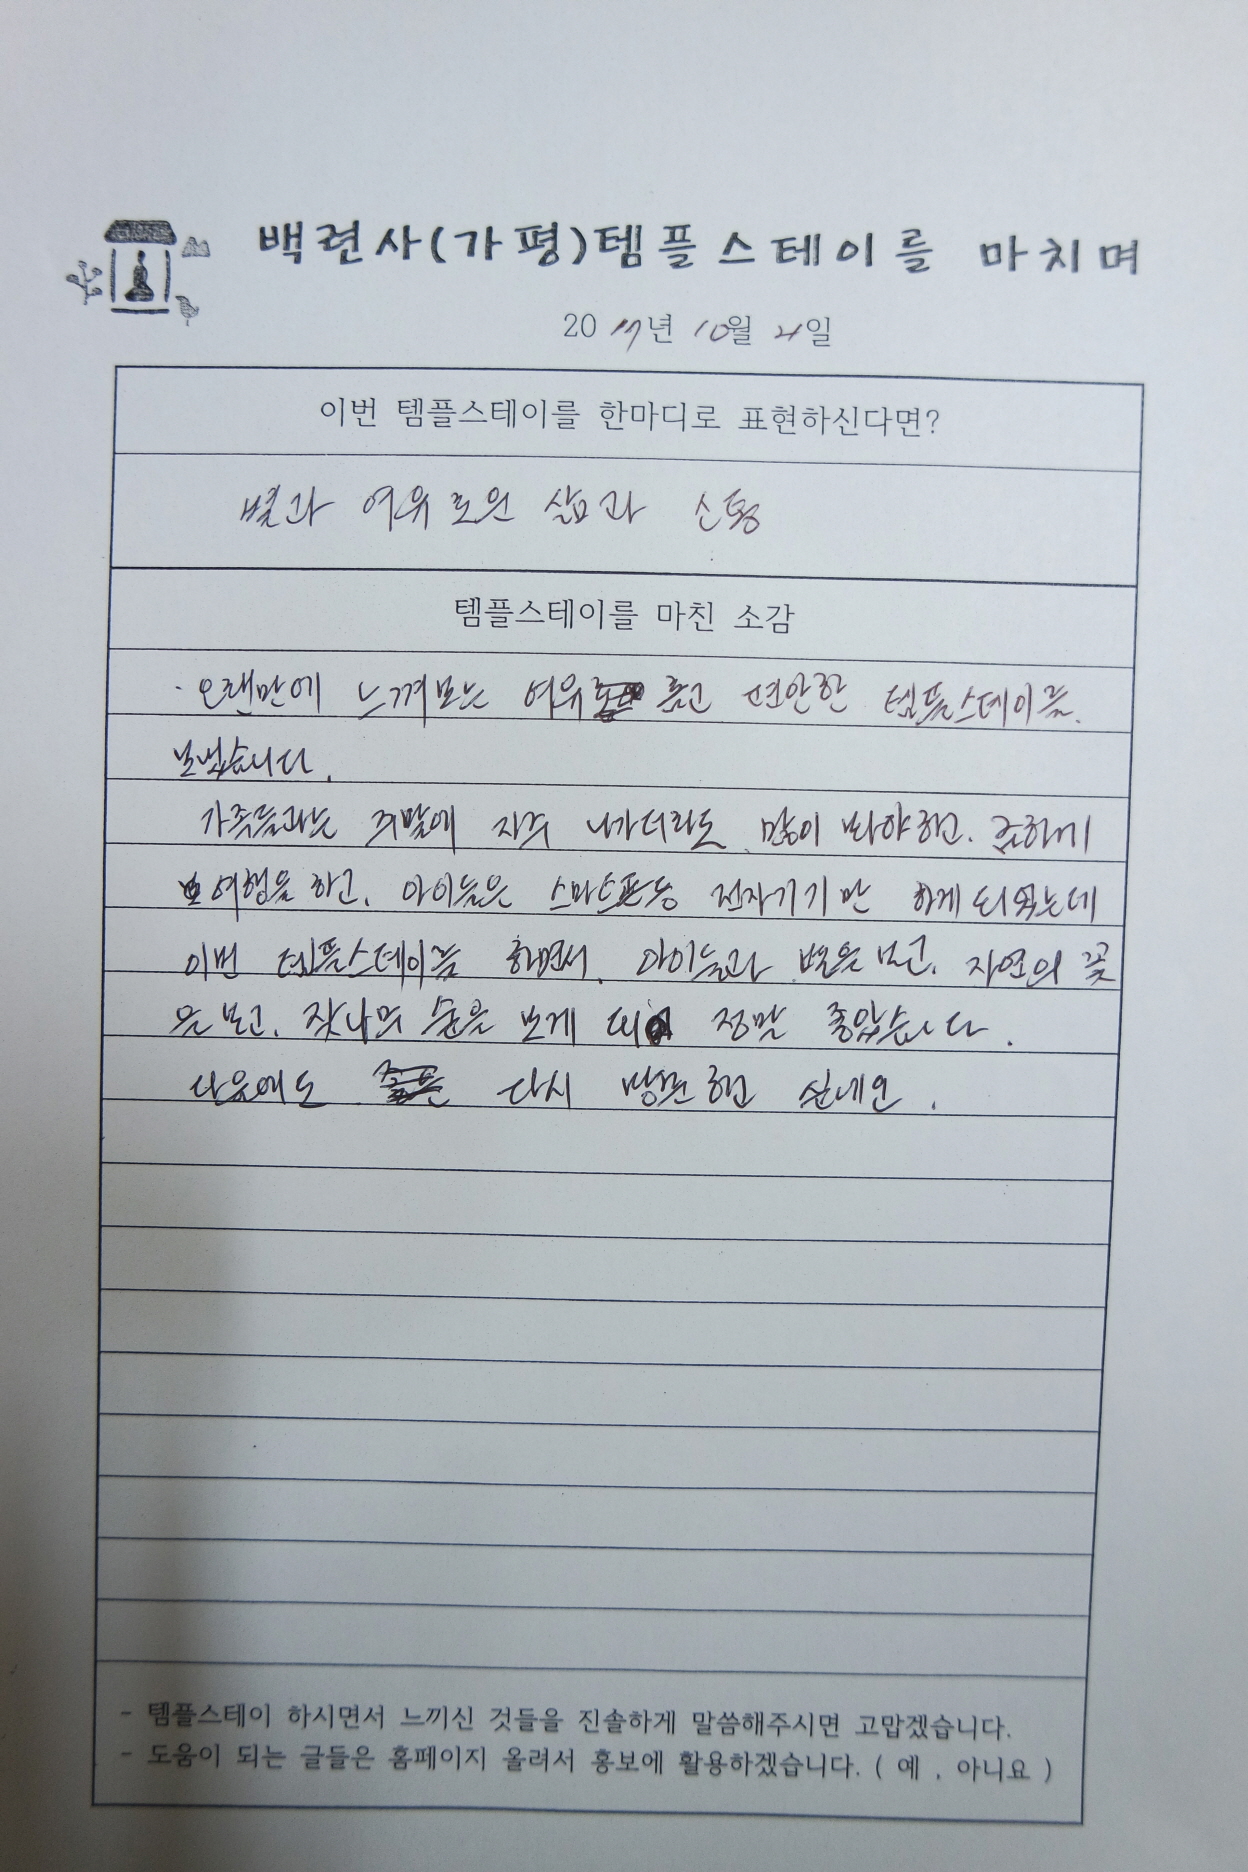 백련사(가평)템플스테이를 마치며
2017년 10월 21일
이번 템플스테이를 한마디로 표현하신다면?
별과 여유로운 삶과 소통
템플스테이를 마친 소감
오랜만에 느껴보는 여유롭고 편안한 템플스테이를
보냈습니다.
가족들과는 주말에 자주 나가더라도 많이 봐야하고.
여행을 하고. 아이들은 스마트폰등 전자기기만 하게 되었는데
이번 템플스테이를 하면서. 아이들과 별을 보고. 자연의 꽃
을 보고. 잣나무 숲을 보게 되어 정말 좋았습니다.
다음에도 다시 방문하고 싶네요.
- 템플스테이 하시면서 느끼신 것들을 진솔하게 말씀해주시면 고맙겠습니다.
- 도움이 되는 글들은 홈페이지 올려서 홍보에 활용하겠습니다. ( 예 , 아니요 )